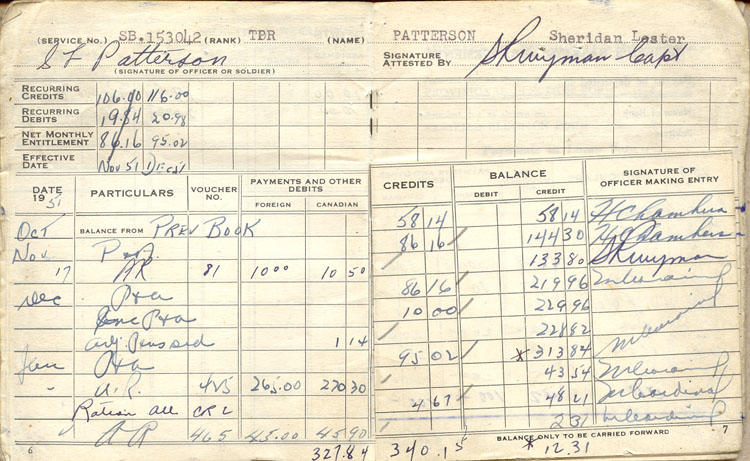 (SERVICE No.) SB.153042 (RANK) TPR (NAME) PATTERSON Sheridan Lester
S L Patterson
(SIGNATURE OF OFFICER OR SOLDIER)
SIGNATURE ATTESTED BY Capt
RECURRING CREDITS 106.00 116.00
RECURRING DEBITS 19.84 20.98
NET MONTHLY ENTITLEMENT 86.16 95.02
EFFECTIVE DATE Nov 51 1 Dec 51
DATE 1951 PARTICULARS VOUCHER NO. PAYMENTS AND OTHER DEBITS FOREIGN CANADIAN CREDITS BALANCE DEBIT CREDIT SIGNATURE OF OFFICER MAKING ENTRY
Oct BALANCE FROM PREV BOOK 58 14 58 14 H Chambers
Nov P&A 86 16 144 30 H Chambers
17 AR 81 10 00 10 50 133 80
Dec P&A 86 16 219 96
P&A 10 00 229 96
adj 1 14 228 82
Jan P&A 95 02 *313 84
" A.R. 425 265.00 270 30 43 54
Ration All CR 2 4 67 48 21
AR 465 45.00 45 90 2 31
BALANCE ONLY TO BE CARRIED FORWARD
6 327.84 340.15 * 12.31 7